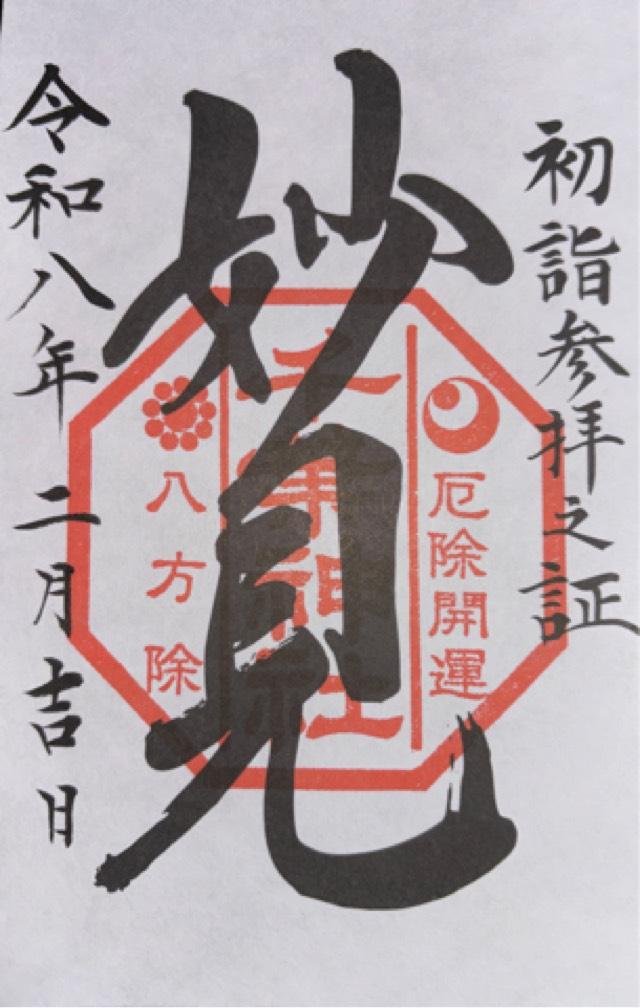 初詣参拝之証
妙見
厄除開運
千葉神社
八方除
令和八年 二月吉日